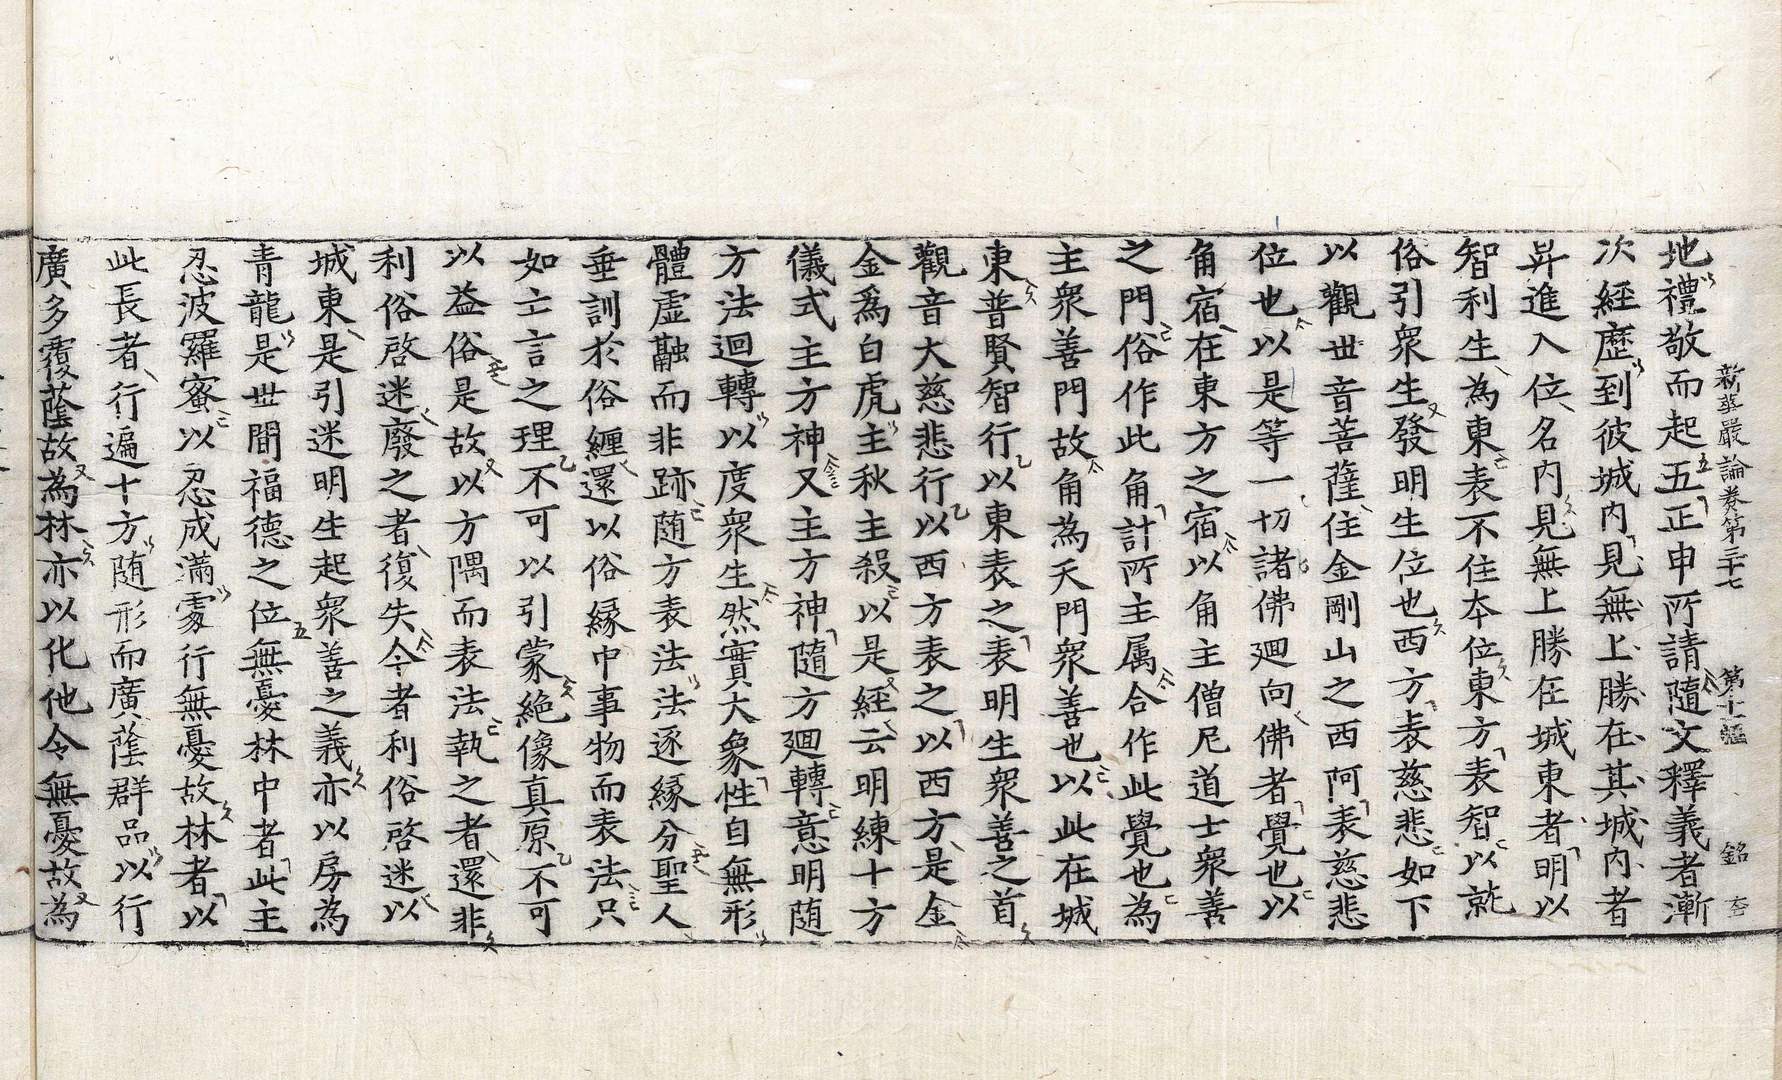 新華嚴論卷第三十七 第十一幅 銘
地禮敬而起五正申所請隨文釋義者漸
次經歷到彼城内見無上勝在其城内者
昇進入位名内見無上勝在城東者明以
智利生為東表不住本位東方表智以就
俗引衆生發明生位也西方表慈悲如下
以觀世音菩薩住金剛山之西阿表慈悲
位也以是等一切諸佛廻向佛者覺也以
角宿在東方之宿以角主僧尼道士衆善
之門俗作此角計所主属合作此覺也為
主衆善門故角為天門衆善也以此在城
東普賢智行以東表之表明生衆善之首
觀音大慈悲行以西方表之以西方是金
金爲白虎主秋主殺以是經云明練十方
儀式主方神又主方神隨方廻轉意明随
方法迴轉以度衆生然實大象性自無形
體虛融而非跡随方表法法逐緣分聖人
垂訓於俗纏還以俗緣中事物而表法只
如亡言之理不可以引蒙絶像真原不可
以益俗是故以方隅而表法執之者還非
利俗啓迷廢之者復失今者利俗啓迷以
城東是引迷明生起衆善之義亦以房為
青龍是世間福德之位無憂林中者此主
忍波羅蜜以忍成滿眾行無憂故林者以
此長者行遍十方随形而廣蔭群品以行
廣多覆蔭故為林亦以化他令無憂故為